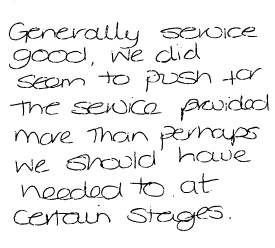 Generally service
good, we did
seem to push for
the service provided
more than perhaps
we should have
needed to at
certain stages.